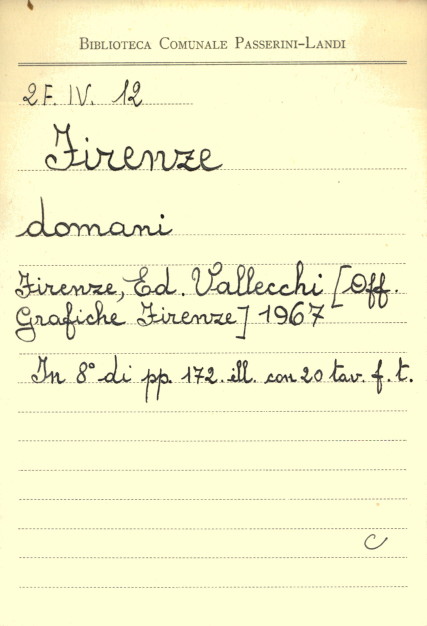 Biblioteca Comunale Passerini-Landi
2F. IV. 12
Firenze
domani
Firenze, Ed. Vallecchi [Off.
Grafiche Firenze] 1967
In 8° di pp. 172. ill. con 20 tav. f. t.
C